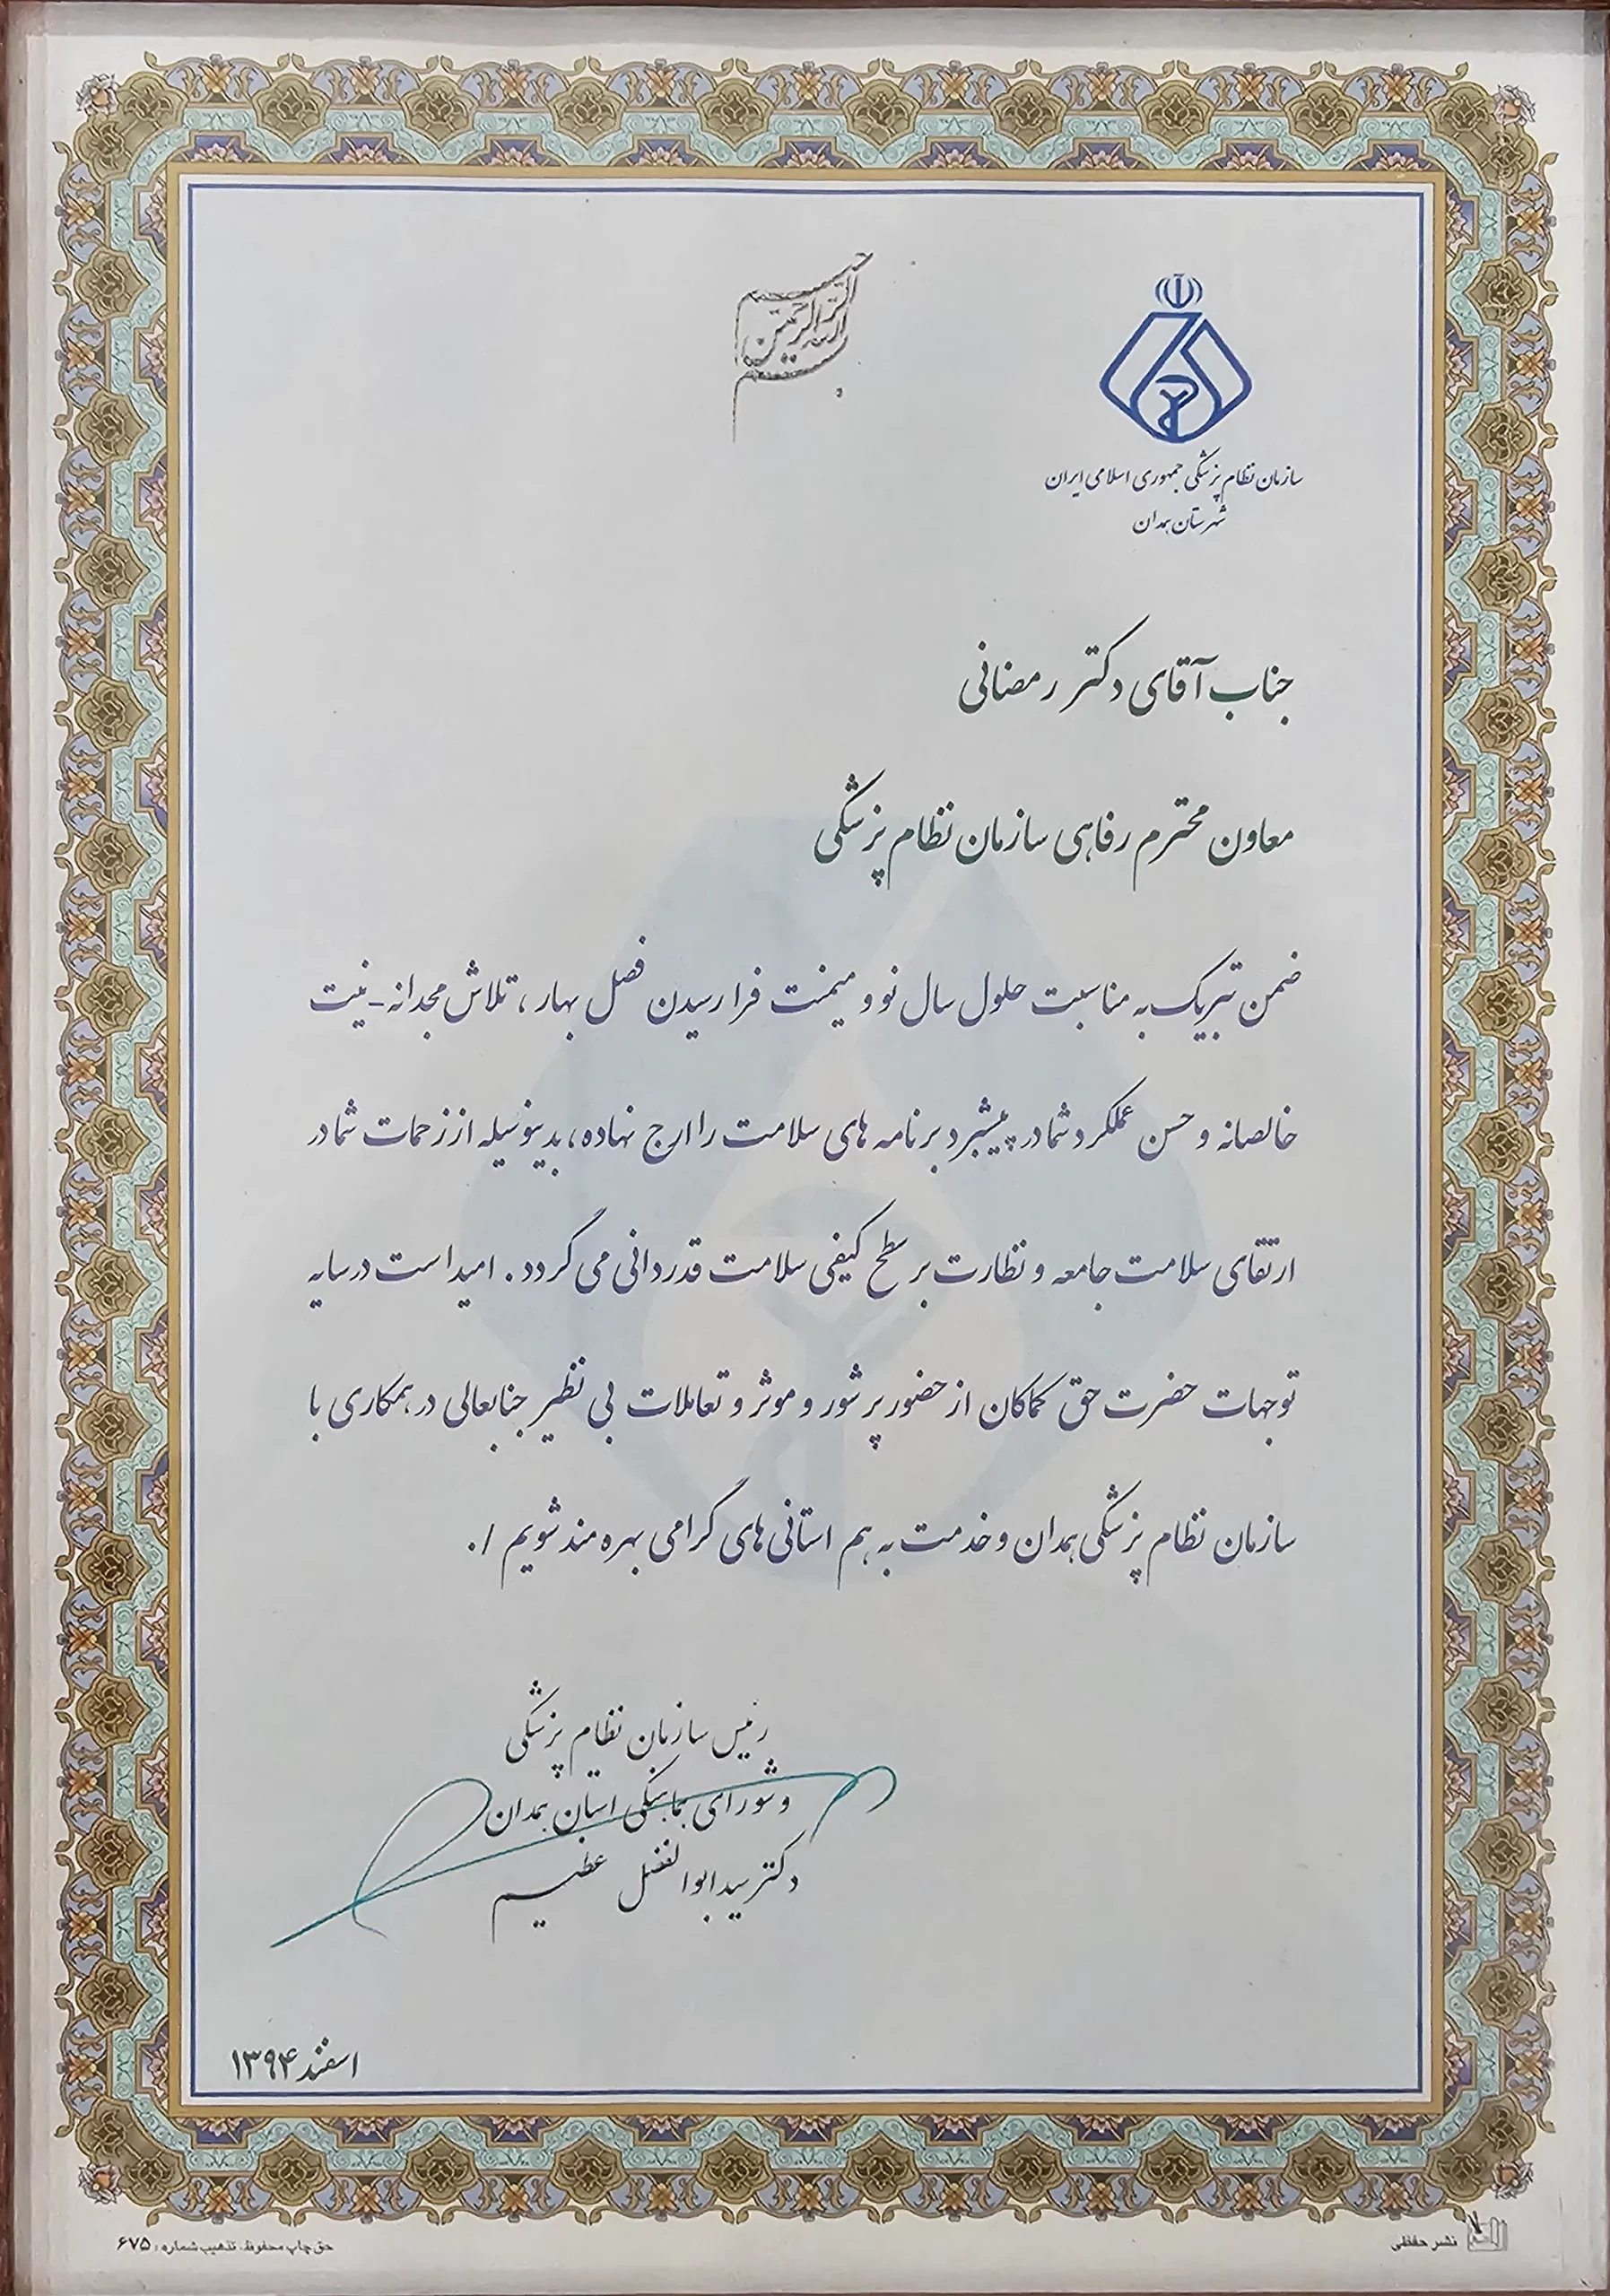 بسم الله الرحمن الرحیم
سازمان نظام پزشکی جمهوری اسلامی ایران
شهرستان همدان
جناب آقای دکتر رمضانی
معاون محترم رفاهی سازمان نظام پزشکی
ضمن تبریک به مناسبت حلول سال نو و میمنت فرا رسیدن فصل بهار، تلاش مجدانه - نیت
خالصانه و حسن عملکرد شما در پیشبرد برنامه های سلامت را ارج نهاده، بدینوسیله از زحمات شما در
ارتقای سلامت جامعه و نظارت بر سطح کیفی سلامت قدردانی می گردد. امید است در سایه
توجهات حضرت حق کماکان از حضور پر شور و موثر و تعاملات بی نظیر جنابعالی در همکاری با
سازمان نظام پزشکی همدان و خدمت به هم استانی های گرامی بهره مند شویم /.
رئیس سازمان نظام پزشکی
و شورای هماهنگی استان همدان
دکتر سید ابوالفضل عظیم
اسفند ۱۳۹۴
نشر حفظی
حق چاپ محفوظ، تذهیب شماره: ۶۷۵